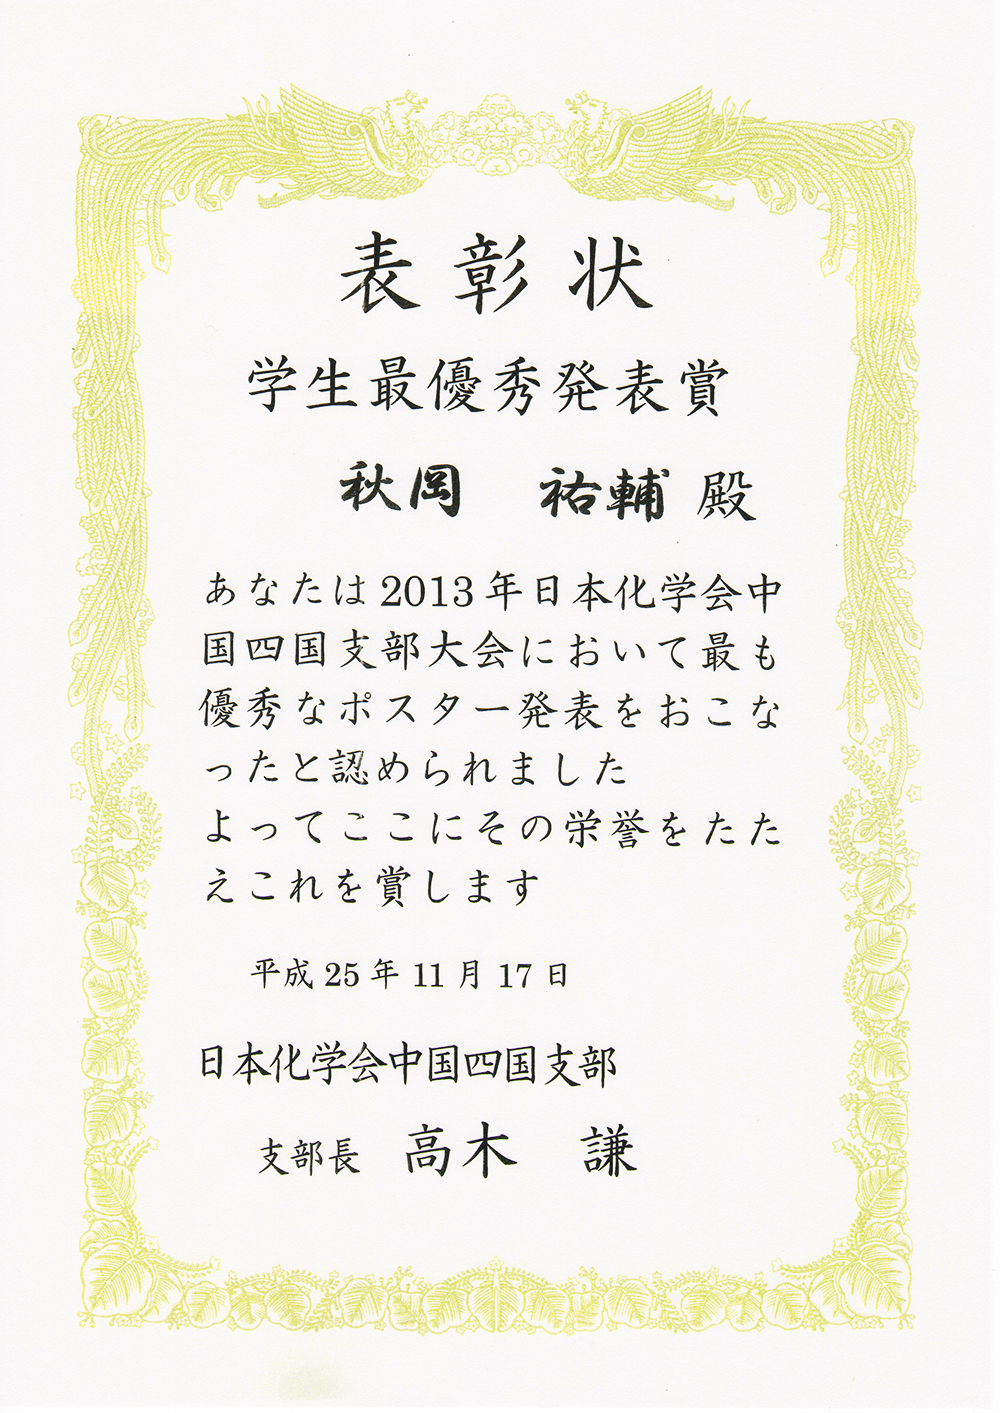 表彰状
学生最優秀発表賞
秋岡 祐輔 殿
あなたは2013年日本化学会中
国四国支部大会において最も
優秀なポスター発表をおこな
ったと認められました
よってここにその栄誉をたた
えこれを賞します
平成25年11月17日
日本化学会中国四国支部
支部長 高木 謙